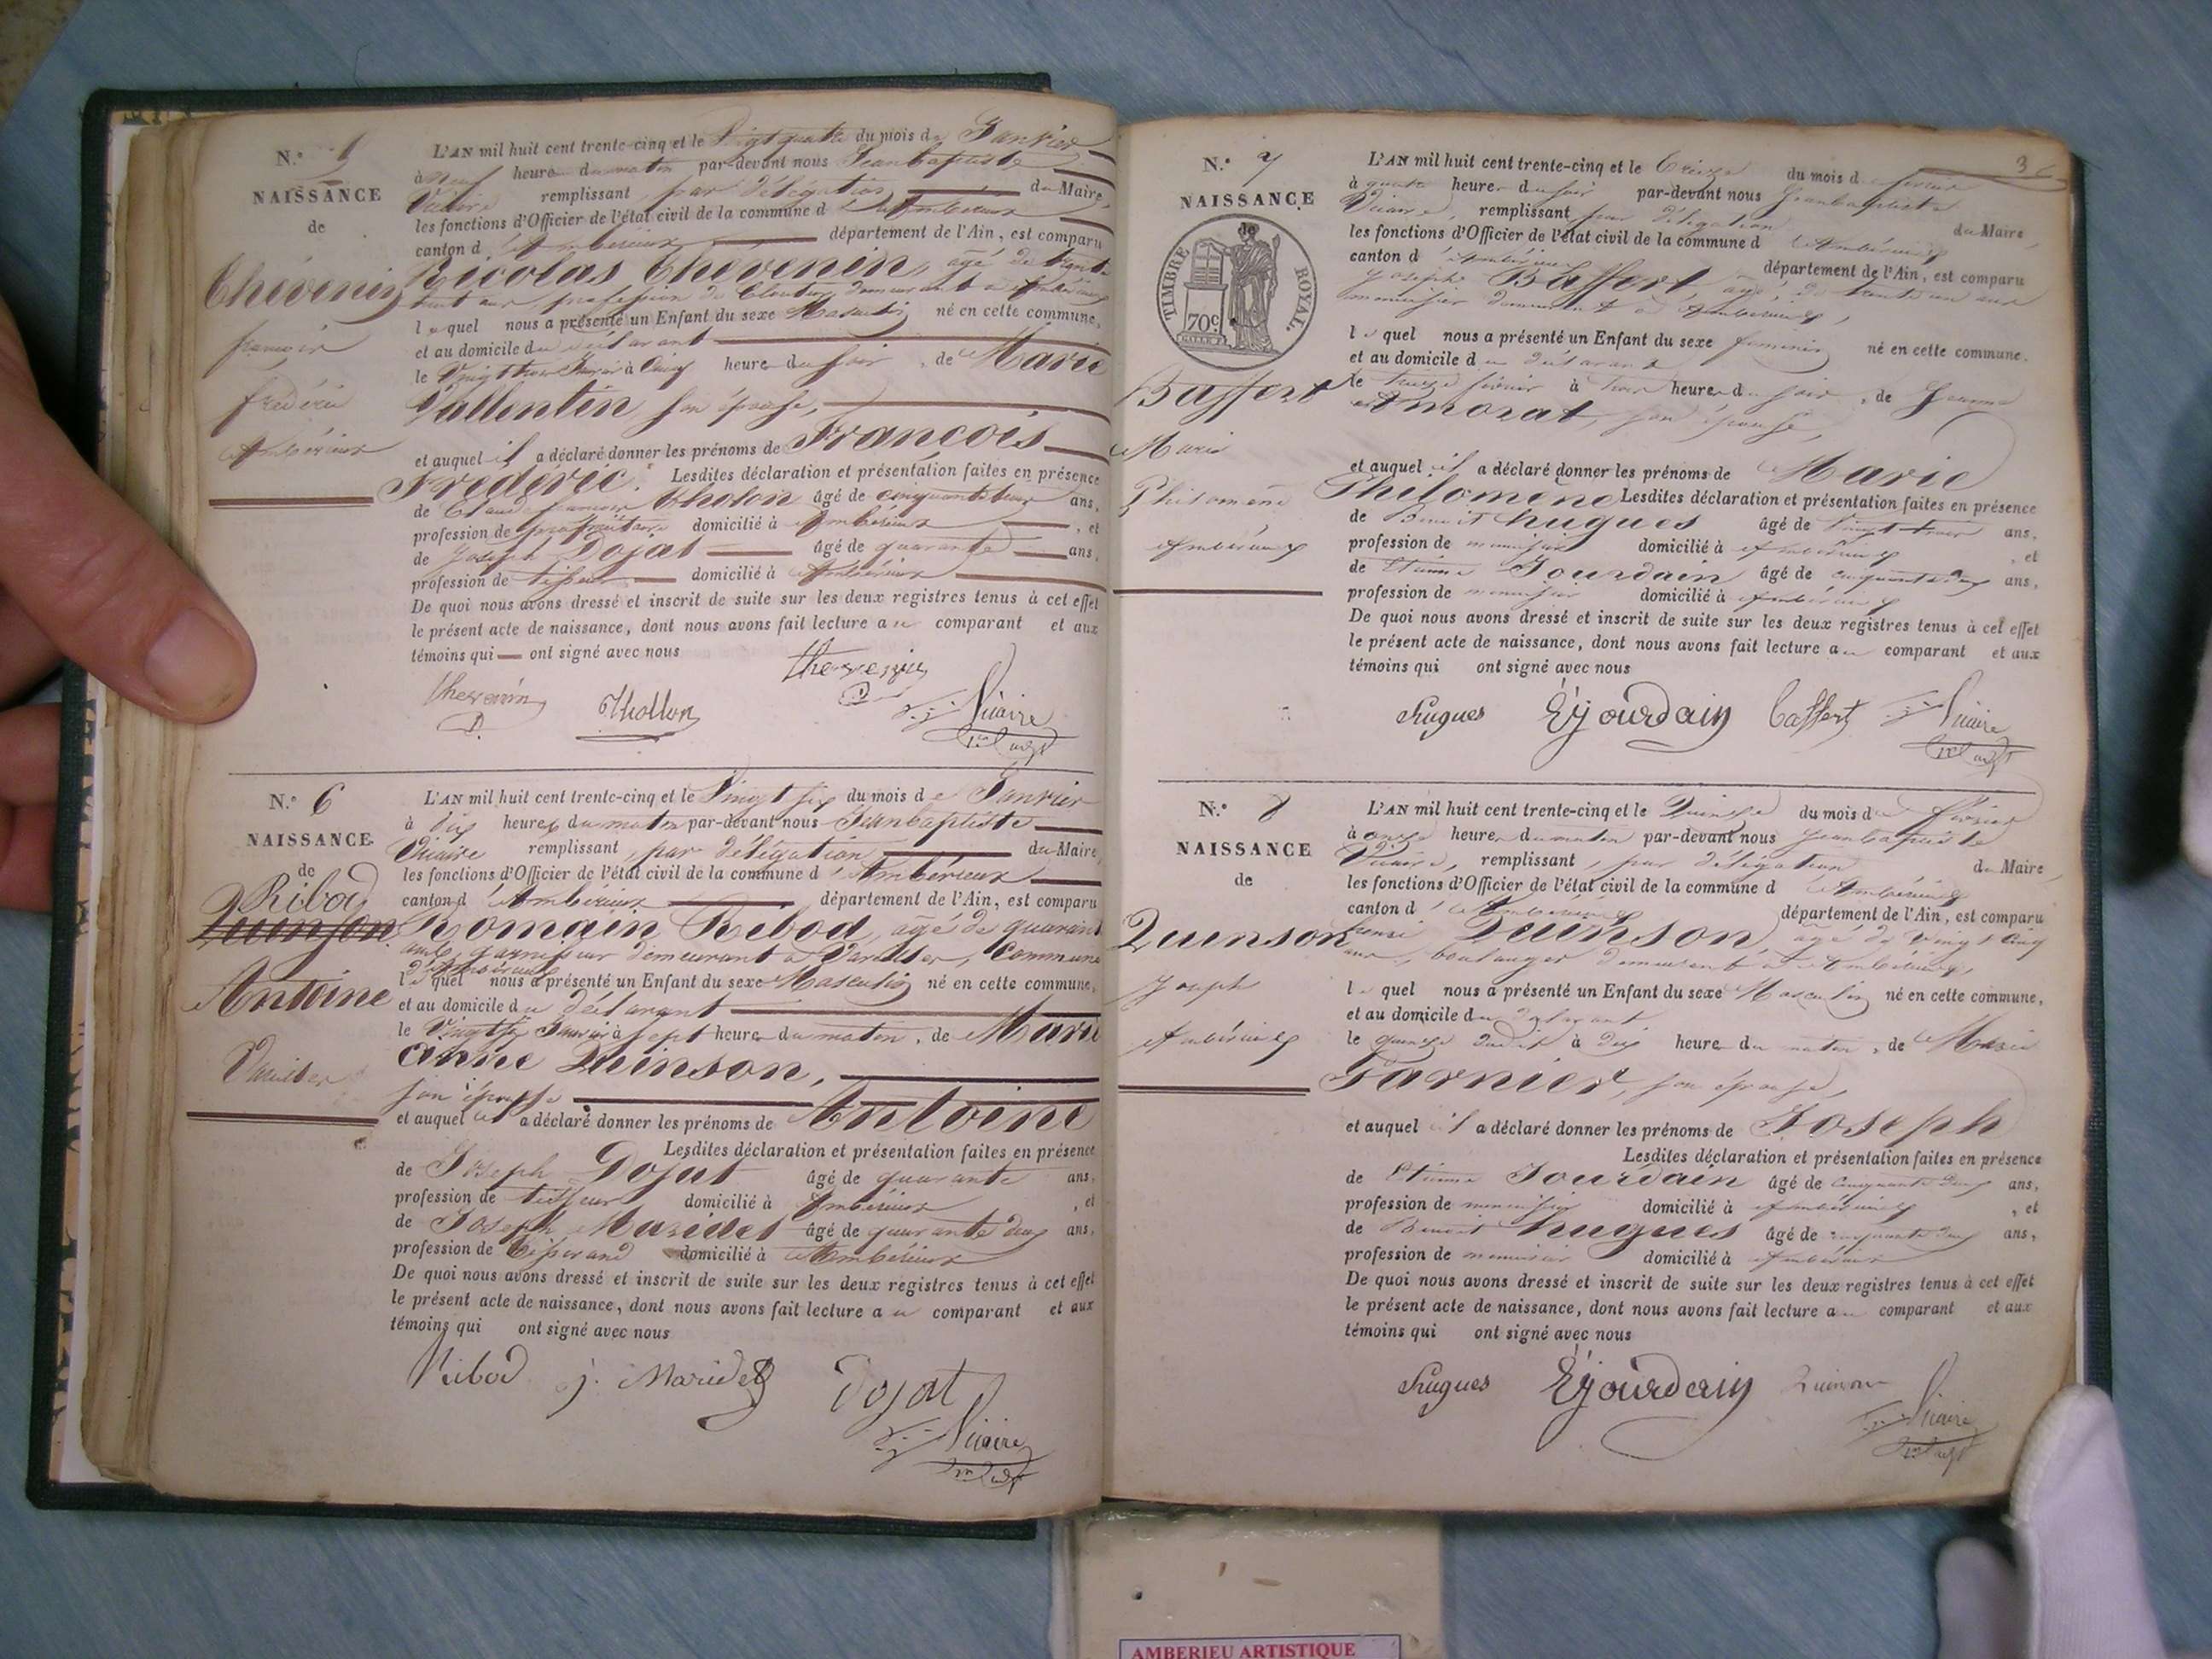 N.° 5
NAISSANCE
de
Thévenin
françois
frédéric
Ambérieux
L'AN mil huit cent trente-cinq et le Vingt quatre du mois de Janvier
à neuf heures du matin par-devant nous Jean baptiste
Vicaire remplissant, par délégation du Maire,
les fonctions d'Officier de l'état civil de la commune d'Ambérieux
canton d'Ambérieux département de l'Ain, est comparu
Nicolas Thévenin, agé de trente
huit ans, profession de Cloutier demeurant à Ambérieux
lequel nous a présenté un Enfant du sexe Masculin né en cette commune,
et au domicile du déclarant
le Vingt trois Janvier à Cinq heures du soir, de Marie
Vallentin son épouse,
et auquel il a déclaré donner les prénoms de François
Frédéric. Lesdites déclaration et présentation faites en présence
de Claude françois Tholon âgé de cinquante ans,
profession de propriétaire domicilié à Ambérieux, et
de Joseph Dojat âgé de quarante ans,
profession de tisseur domicilié à Ambérieux
De quoi nous avons dressé et inscrit de suite sur les deux registres tenus à cet effet
le présent acte de naissance, dont nous avons fait lecture au comparant et aux
témoins qui ont signé avec nous
thevenin thevenin
Thollon Vicaire
N.° 6
NAISSANCE
de
Ribod
Quinson
Antoine
Vareilles
L'AN mil huit cent trente-cinq et le Vingt six du mois de Janvier
à dix heures du matin par-devant nous Jean baptiste
Vicaire remplissant, par délégation du Maire,
les fonctions d'Officier de l'état civil de la commune d'Ambérieux
canton d'Ambérieux département de l'Ain, est comparu
Romain Ribod, agé de quarante
ans, demeurant à Vareilles, Commune
d'Ambérieux
lequel nous a présenté un Enfant du sexe Masculin né en cette commune,
et au domicile du déclarant
le Vingt six Janvier à sept heures du matin, de Marie
anne Quinson,
son épouse
et auquel il a déclaré donner les prénoms de Antoine
Lesdites déclaration et présentation faites en présence
de Joseph Dojat âgé de quarante ans,
profession de tisseur domicilié à Ambérieux, et
de Joseph Maridet âgé de quarante deux ans,
profession de tisserand domicilié à Ambérieux
De quoi nous avons dressé et inscrit de suite sur les deux registres tenus à cet effet
le présent acte de naissance, dont nous avons fait lecture au comparant et aux
témoins qui ont signé avec nous
Ribod j. Maridet Dojat
Vicaire
3
N.° 7
NAISSANCE
TIMBRE ROYAL.
70c.
Baffert
Marie
Philomène
Ambérieux
L'AN mil huit cent trente-cinq et le treize du mois de février
à quatre heures du soir par-devant nous Jean baptiste
Vicaire, remplissant par délégation du Maire,
les fonctions d'Officier de l'état civil de la commune d'Ambérieux
canton d'Ambérieux département de l'Ain, est comparu
Joseph Baffert agé de trente un ans
menuisier demeurant à Ambérieux,
lequel nous a présenté un Enfant du sexe féminin né en cette commune.
et au domicile du déclarant
le treize février à trois heures du soir, de Jeanne
Amorat, son épouse,
et auquel il a déclaré donner les prénoms de Marie
Philomène Lesdites déclaration et présentation faites en présence
de Benoit hugues âgé de Vingt trois ans,
profession de menuisier domicilié à Ambérieux, et
de Etienne Jourdain âgé de cinquante deux ans,
profession de menuisier domicilié à Ambérieux
De quoi nous avons dressé et inscrit de suite sur les deux registres tenus à cet effet
le présent acte de naissance, dont nous avons fait lecture au comparant et aux
témoins qui ont signé avec nous
hugues Ejourdain baffert Vicaire
N.° 8
NAISSANCE
de
Quinson
Joseph
Ambérieux
L'AN mil huit cent trente-cinq et le Quinze du mois de février
à onze heures du matin par-devant nous Jean baptiste
Vicaire, remplissant, par délégation du Maire,
les fonctions d'Officier de l'état civil de la commune d'Ambérieux
canton d'Ambérieux département de l'Ain, est comparu
Quinson, âgé de vingt cinq
ans, boulanger demeurant à Ambérieux,
lequel nous a présenté un Enfant du sexe Masculin né en cette commune,
et au domicile du déclarant
le quinze dudit à dix heures du matin, de Marie
Garnier, son épouse,
et auquel il a déclaré donner les prénoms de Joseph
Lesdites déclaration et présentation faites en présence
de Etienne Jourdain âgé de cinquante deux ans,
profession de menuisier domicilié à Ambérieux, et
de Benoit hugues âgé de cinquante deux ans,
profession de menuisier domicilié à Ambérieux
De quoi nous avons dressé et inscrit de suite sur les deux registres tenus à cet effet
le présent acte de naissance, dont nous avons fait lecture au comparant et aux
témoins qui ont signé avec nous
hugues Ejourdain Quinson
Vicaire
AMBERIEU ARTISTIQUE